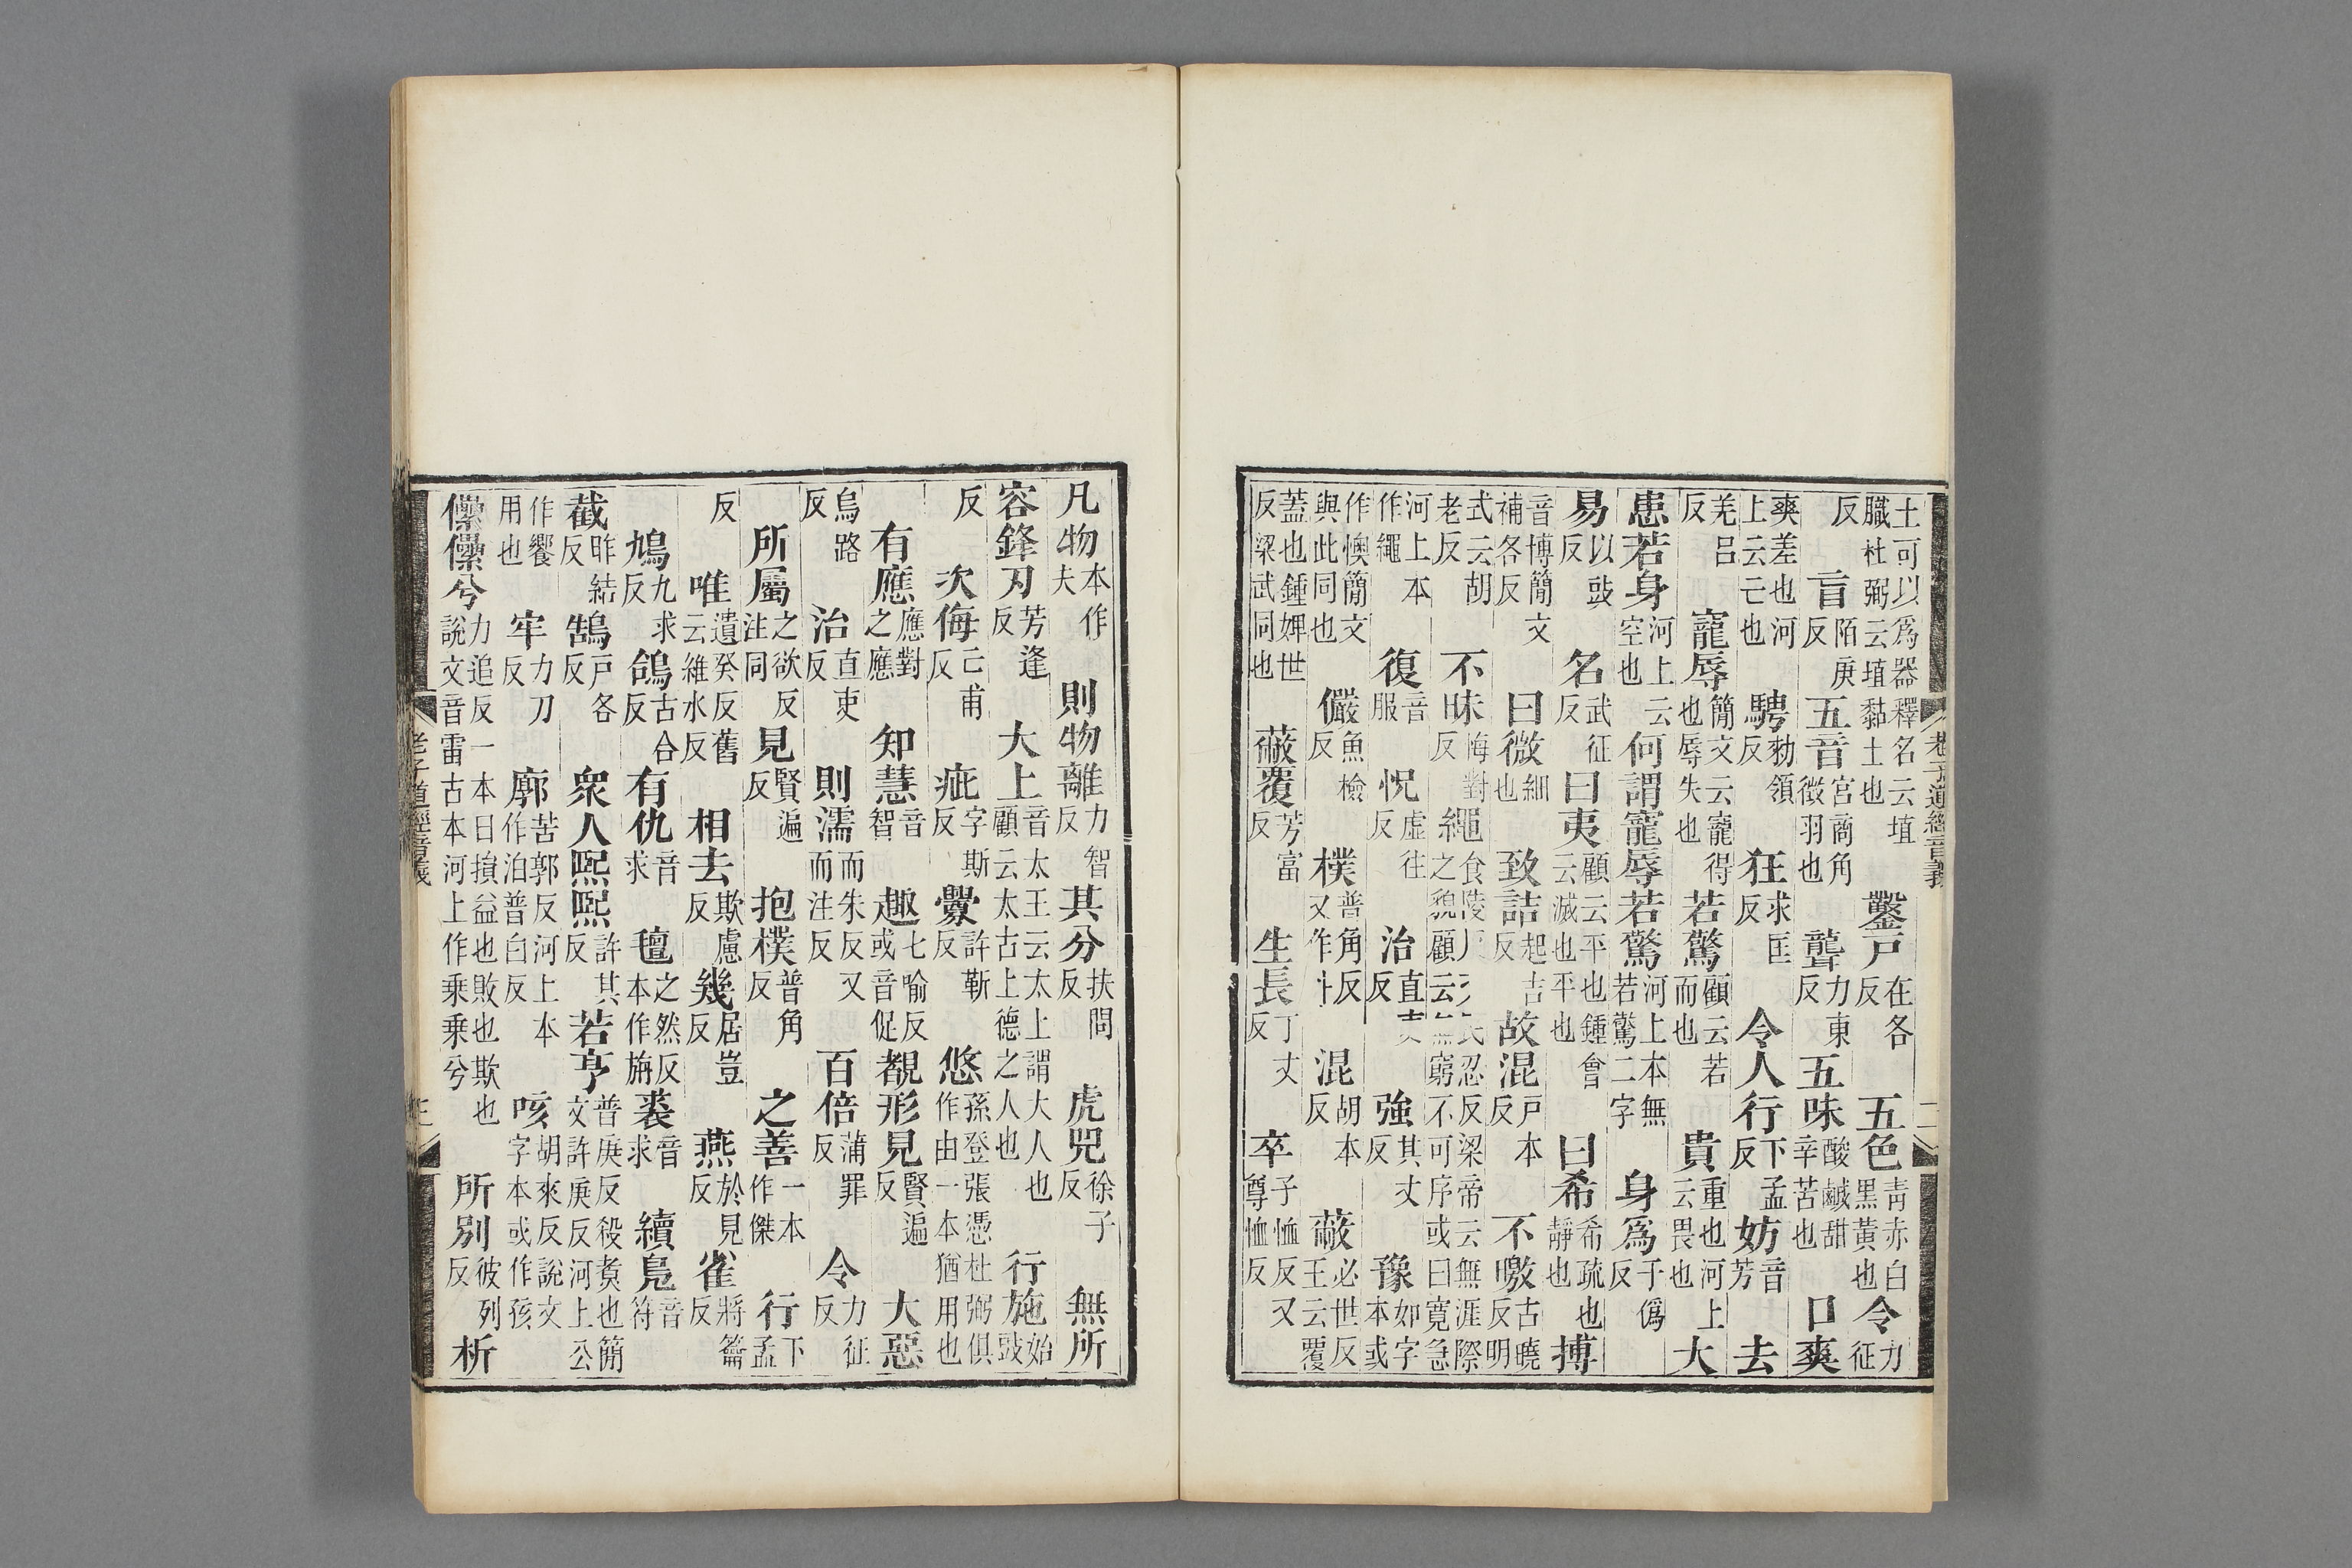 土可以爲器釋名云埴膱杜弼云埴黏土也鑿戶在各反五色青赤白黑黃也令力征
反盲陌庚反五音宮商角徵羽也聾力東反五味酸鹹甜辛苦也口爽
爽差也河上云亡也騁勑領反狂求匡反令人行下孟反妨音芳去
羌呂反寵辱簡文云寵得也辱失也若驚顧云若而也貴重也河上云畏也大
患若身河上云空也何謂寵辱若驚河上本無若驚二字身爲于僞反
易以豉反名武征反曰夷顧云平也鍾會云滅也平也曰希希疏也靜也搏
音博簡文補各反曰微細也致詰起吉反故混戶本反不曒古曉反明
式云胡老反不昧梅對反繩食陵反又民忍反梁帝云無涯際之貌顧云無窮不可序或曰寬急
河上本作繩復音服怳虛往反治直吏反強其丈反豫如字本或
作懊簡文與此同也儼魚檢反樸普角反又作卝混胡本反蔽必世反王云覆
蓋也鍾婢世反梁武同也蔽覆芳富反生長丁丈反卒子恤反又尊恤反
老子道經音義 二
凡物本作夫則物離力智反其分扶問反虎兕徐子反無所
容鋒刃芳逢反大上音太王云太上謂大人也顧云太古上德之人也行施始豉
反次侮亡甫反疵字斯反釁許靳反悠孫登張憑杜弼俱作由一本猶用也
有應應對之應知慧音智趣七喻反或音促覩形見賢遍反大惡
烏路反治直吏反則濡而朱反又而注反百倍蒲罪反令力征反
所屬之欲反注同見賢遍反抱樸普角反之善一本作傑行下孟
反唯遺癸反舊云維水反相去欺慮反幾居豈反燕於見反雀將籥反
鳩九求反鴿古合反有仇音求氊之然反本作旃裘音求續鳧音符
截昨結反鵠戶各反衆人熙熙許其反若亨普庚反殺煑也簡文許庚反河上公
作饗用也牢力刀反廓苦郭反河上本作泊普白反咳胡來反說文字本或作孩
儽儽兮力追反一本曰損益也敗也欺也說文音雷古本河上作乘乘兮所別彼列反析
老子道經音義 三